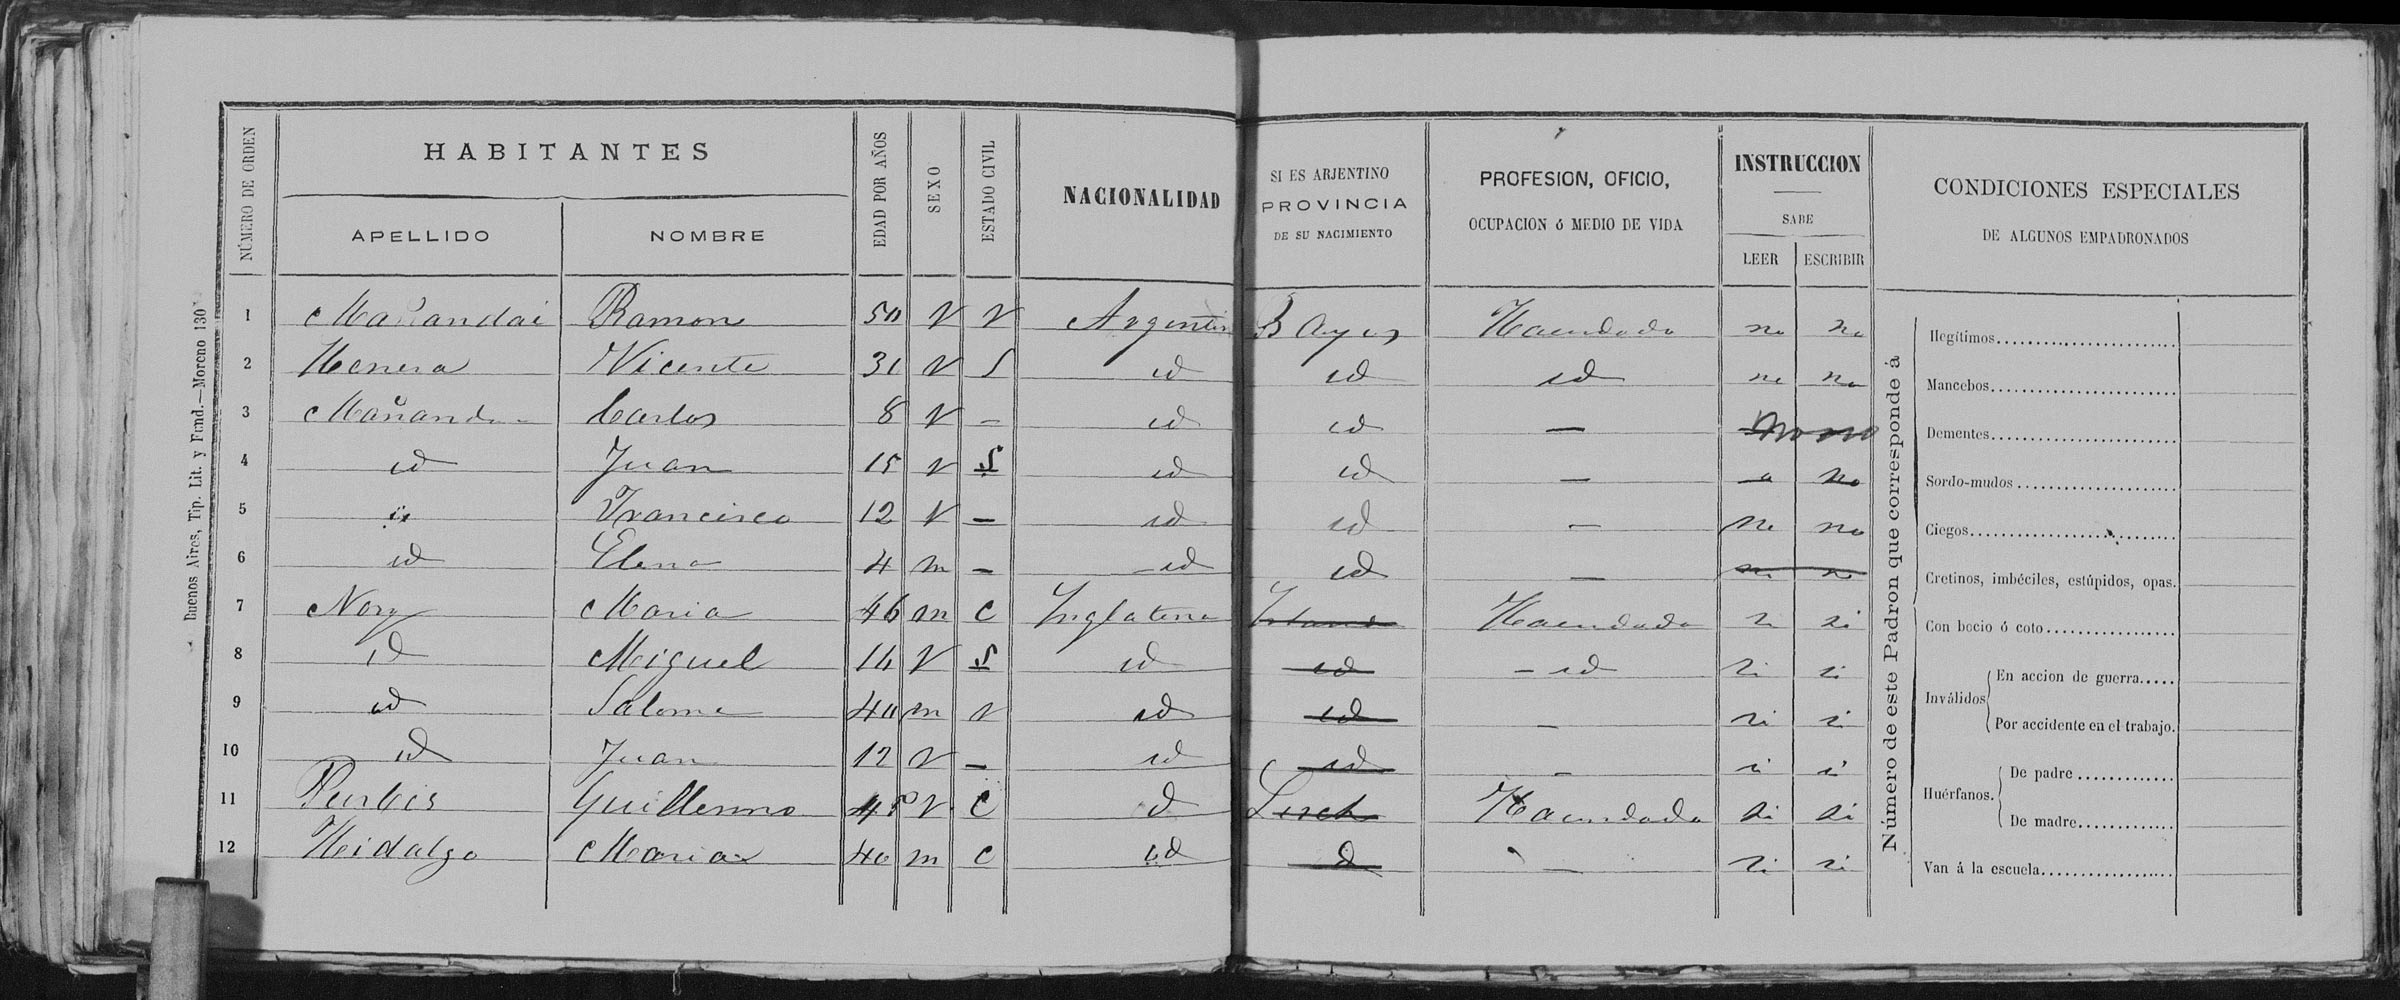 Buenos Aires, Tip. Lit. y Fund.—Moreno 130
NÚMERO DE ORDEN
HABITANTES
APELLIDO NOMBRE
EDAD POR AÑOS
SEXO
ESTADO CIVIL
NACIONALIDAD
SI ES ARJENTINO
PROVINCIA
DE SU NACIMIENTO
PROFESION, OFICIO,
OCUPACION ó MEDIO DE VIDA
INSTRUCCION
SABE
LEER ESCRIBIR
CONDICIONES ESPECIALES
DE ALGUNOS EMPADRONADOS
1 Ramon 50 V V Argentin B Ayres Hacendado no no
2 Vicente 31 V S id id id no no
3 Carlos 8 V – id id — no no
4 id Juan 15 V S id id — no
5 Francisco 12 V – id id – no no
6 id Elena 4 m – id id —
7 Maria 46 m C Inglaterra Hacendada si si
8 id Miguel 14 V S id id – id si si
9 id Salome 40 m V id id – si si
10 id Juan 12 V – id id – si si
11 Guillermo V C id Hacendado si si
12 Hidalgo Maria 40 m C id id — si si
Número de este Padron que corresponde á
Ilegítimos
Mancebos
Dementes
Sordo-mudos
Ciegos
Cretinos, imbéciles, estúpidos, opas.
Con bocio ó coto
Inválidos
En accion de guerra
Por accidente en el trabajo.
Huérfanos.
De padre
De madre
Van á la escuela